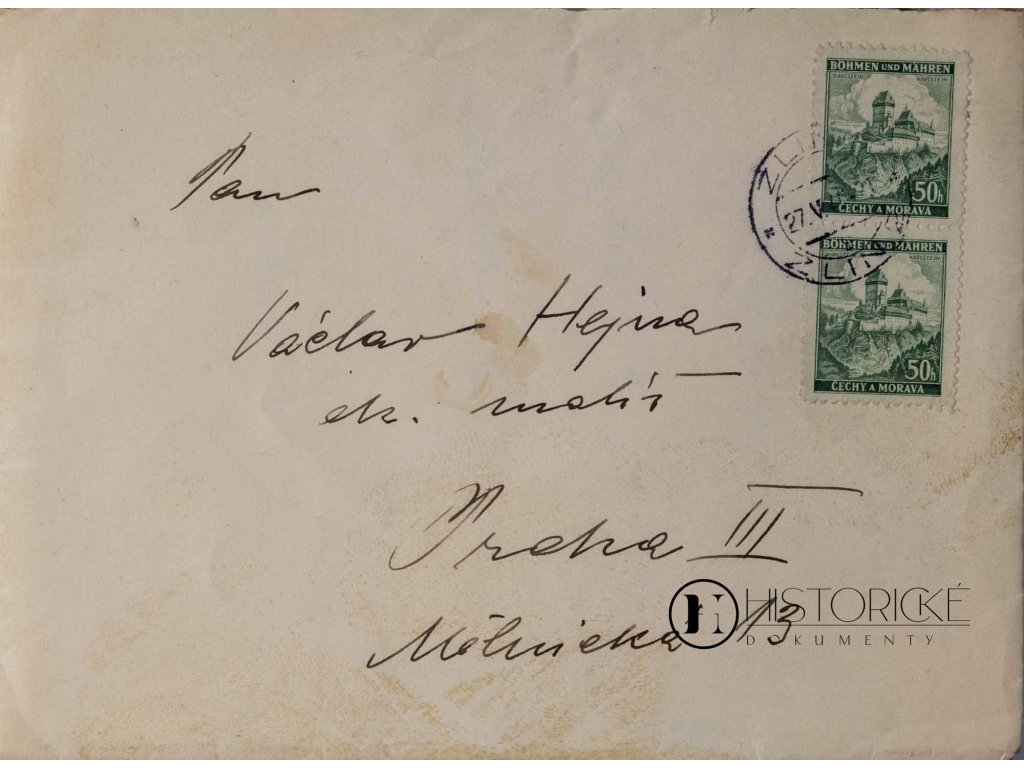 BÖHMEN UND MÄHREN
KARLSTEJN KARLSTEIN
50h
ČECHY A MORAVA
ZLIN
27.V
ZLIN
BÖHMEN UND MÄHREN
KARLSTEIN
50h
ČECHY A MORAVA
Pan
Václav Hejna
ak. malíř
Praha III
Mělnická 13
HISTORICKÉ
DOKUMENTY